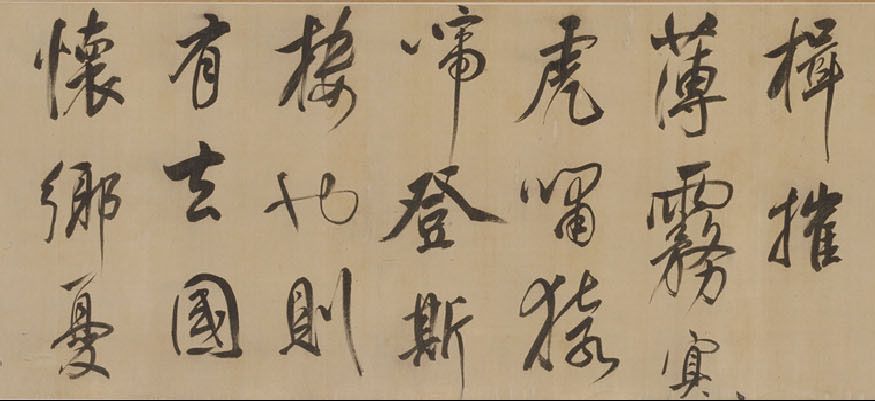 楫摧
薄霧冥々
虎嘯猿
啼登斯
樓也則
有去國
懷鄉憂